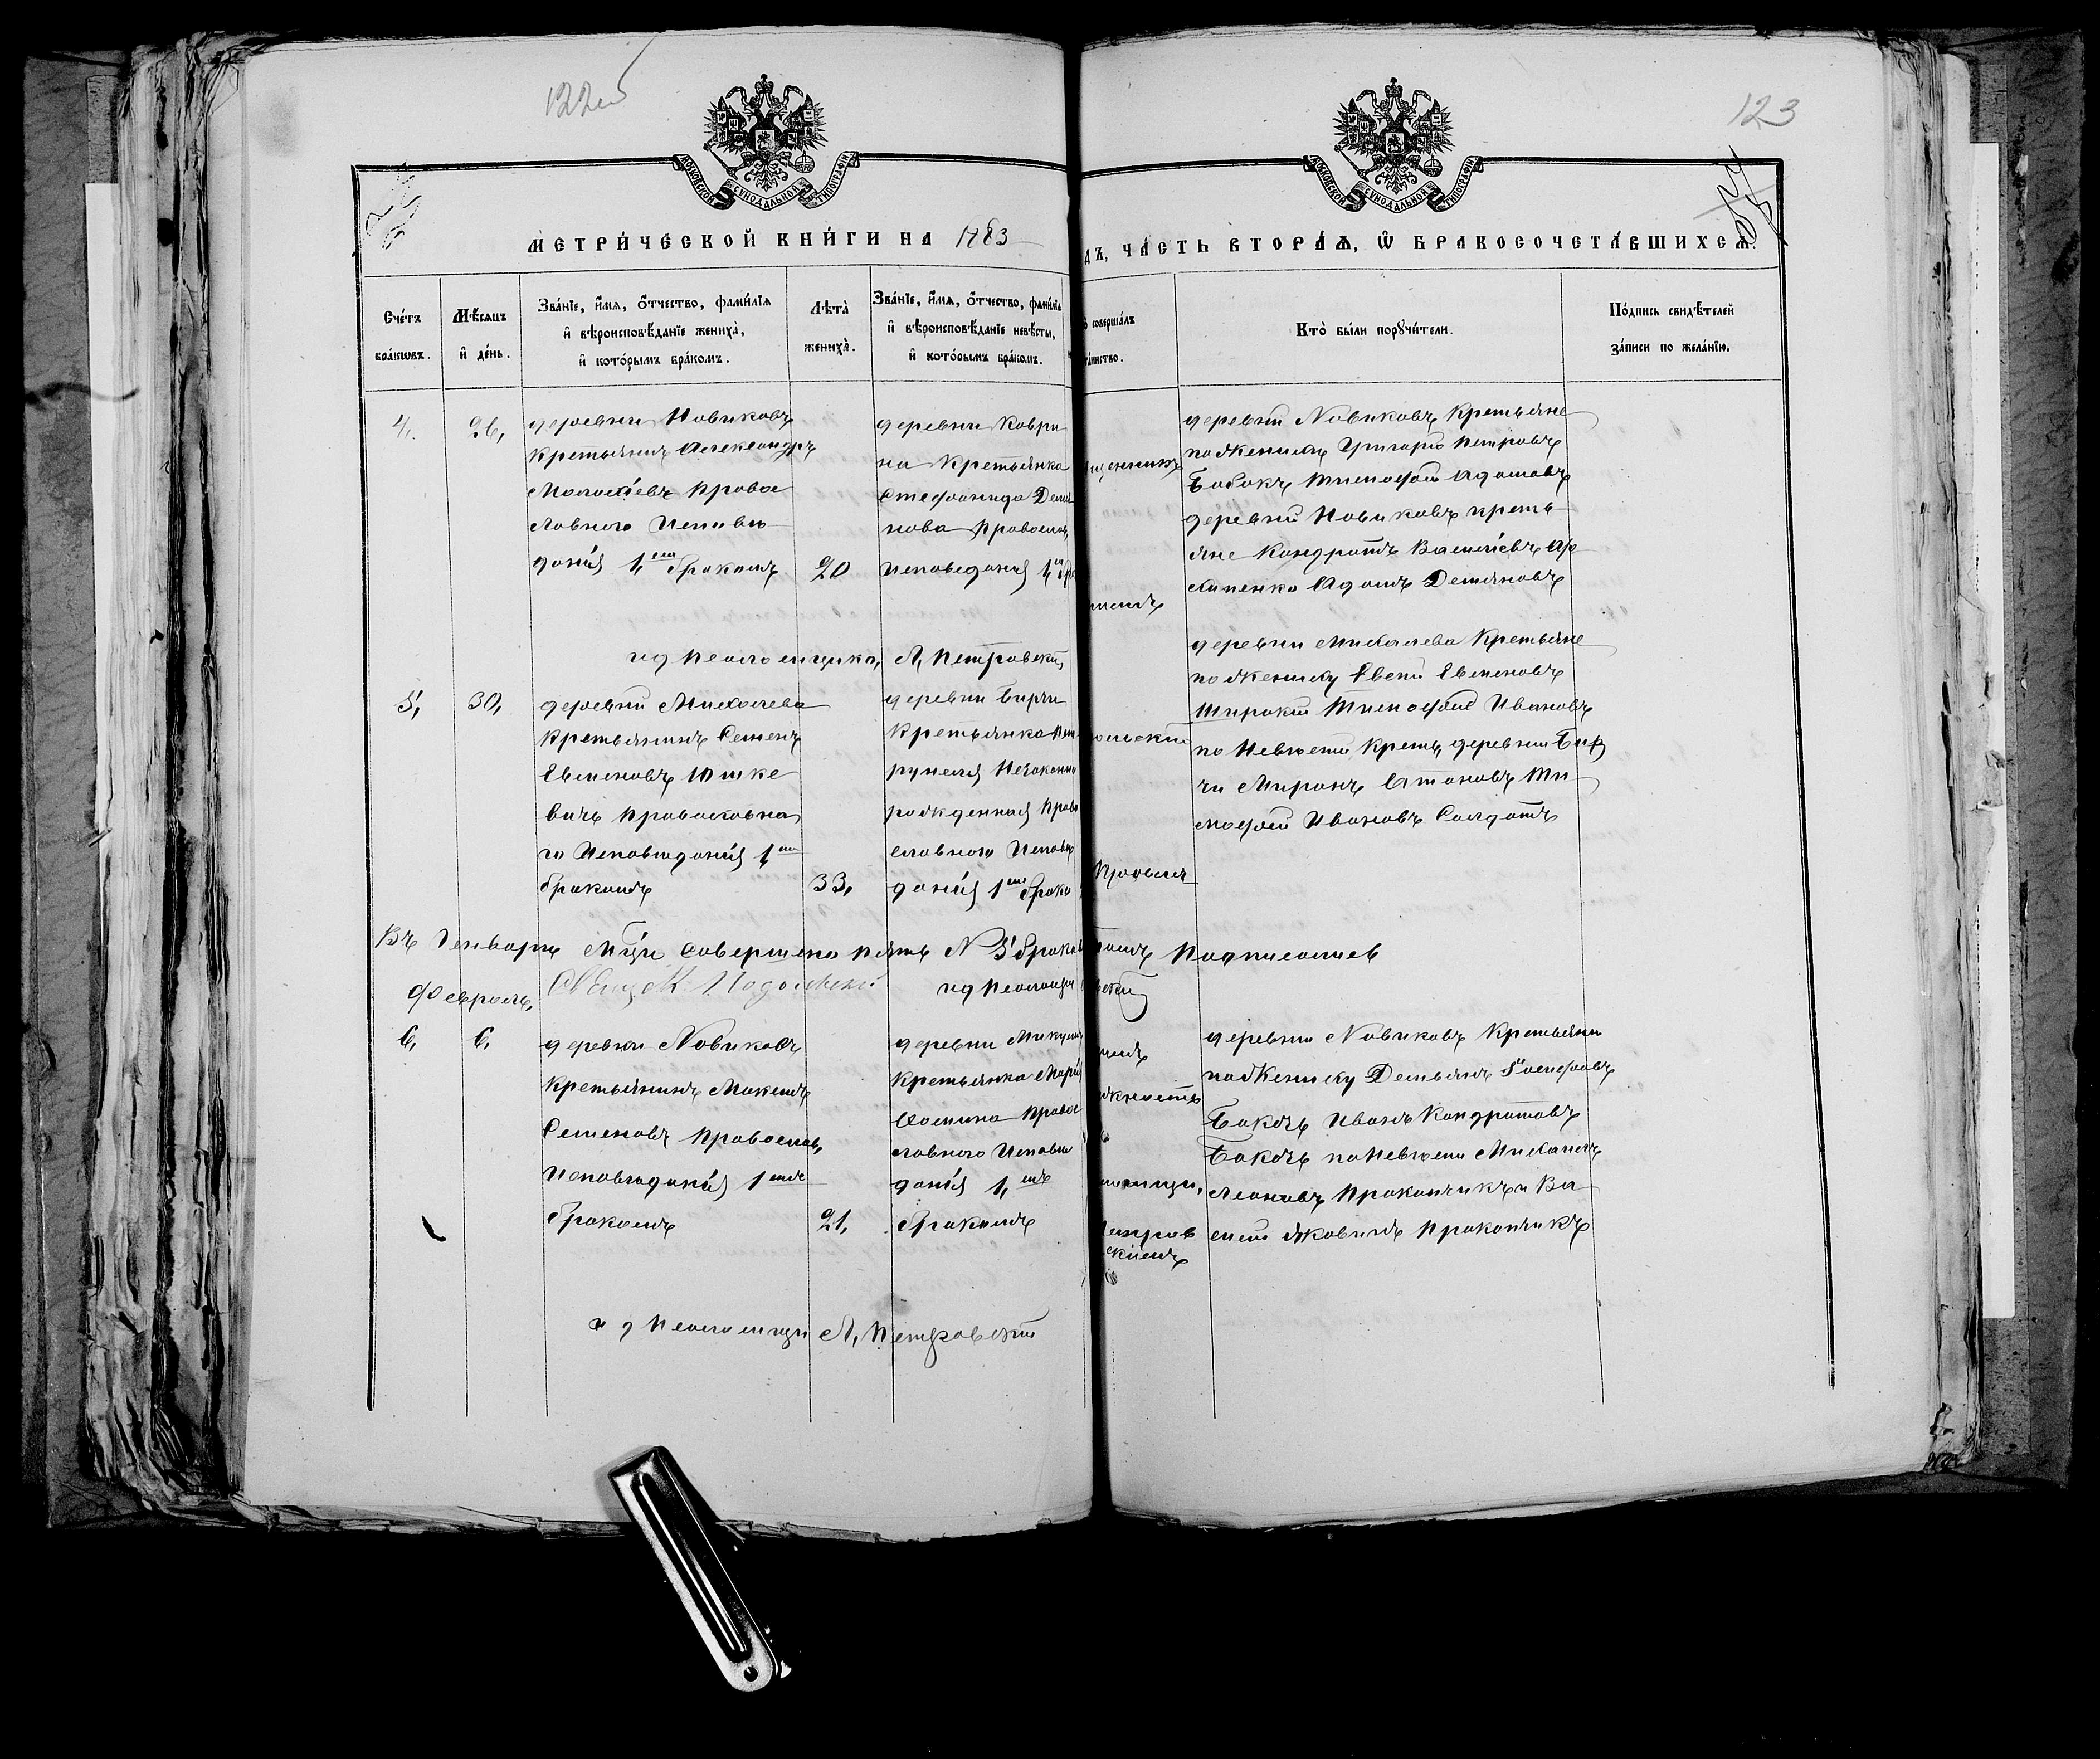 122об
123
МОСКОВСКОЙ СѴНОДАЛЬНОЙ ТИПОГРАФІИ
МОСКОВСКОЙ СѴНОДАЛЬНОЙ ТИПОГРАФІИ
МЕТРИ́ЧЕСКОЙ КНИ́ГИ НА 1883
ДЪ, ЧА́СТЬ ВТОРА́Ѧ, Ѿ БРАКОСОЧЕТА́ВШИХСѦ.
Сче́тъ
бра́кѡвъ.
Мѣ́сяцъ
и҆ де́нь.
Зва́нїе, и҆́мя, ѻ҆́тчество, фами́лїя
и҆ вѣроисповѣ́данїе жениха̀,
и҆ кото́рымъ бра́комъ.
Лѣта̀
жениха̀.
Зва́нїе, и҆́мя, ѻ҆́тчество, фами́лїя
и҆ вѣроисповѣ́данїе невѣ́сты,
и҆ кото́рымъ бра́комъ.
совершáлъ
та́инство.
Кто̀ бы́ли порꙋчи́тели.
По́дпись свидѣ́телей
за́писи по жела́нїю.
4.
26,
деревни Новиковъ
Крестьянинъ Александръ
Правос
лавнаго Исповѣ
данія 1ым бракомъ
20
деревни Коври
на Крестьянка
Стефанида Демя
нова Православ,
исповеданія 1,м бра
щенникъ
емъ
деревни Новиковъ Крестьяне
по женику Григорій Петровъ
Бобокъ Тимофей Адамовъ
деревни Новиковъ кресть
яне Кондратъ Василіевъ Ар
хипенко Адамъ Демяновъ
ид Псаломщика, А, Петровскій
5,
30,
деревни Михалева
Крестьянинъ Семенъ
Евменовъ Юшке
вичъ Православна
го Исповѣданія 1ым
бракомъ
33,
деревни Бирчи
Крестьянка Пет
рунеля Незаконно
рожденная Право
славнаго Исповѣ
данія 1ым брако
ольскій
деревни Михалева Крестьяне
по женику Евсей Евменовъ
Широкій Тимофей Ивановъ
по Невѣсти Крест, деревни Бир
чи Миронъ Антоновъ Ти
мофей Ивановъ Солдатъ
Въ Генварѣ Мцѣ совершено пять N 5 брако
Подписался
Свящ К. Подольскій
ид Псаломщи
скій
Февраль,
6,
6,
деревни Новиковъ
Крестьянинъ Максимъ
Семеновъ Православ,
Исповѣданія 1ымъ
бракомъ
21,
деревни Микул
Крестьянка Марія
Фомина Правос
лавнаго Исповѣ
данія 1,ымъ
бракомъ
емъ
жность
омщи,
Петров
скіемъ
деревни Новиковъ Крестьяни
по Женику Демьянъ Іосифовъ
Бакачъ Иванъ Кондратовъ
Бакачъ по Невѣсти Михаилъ
Леоновъ Прокопчикъ и Ва
силій Яковинъ Прокопчикъ
и д Псаломщи А, Петровскій